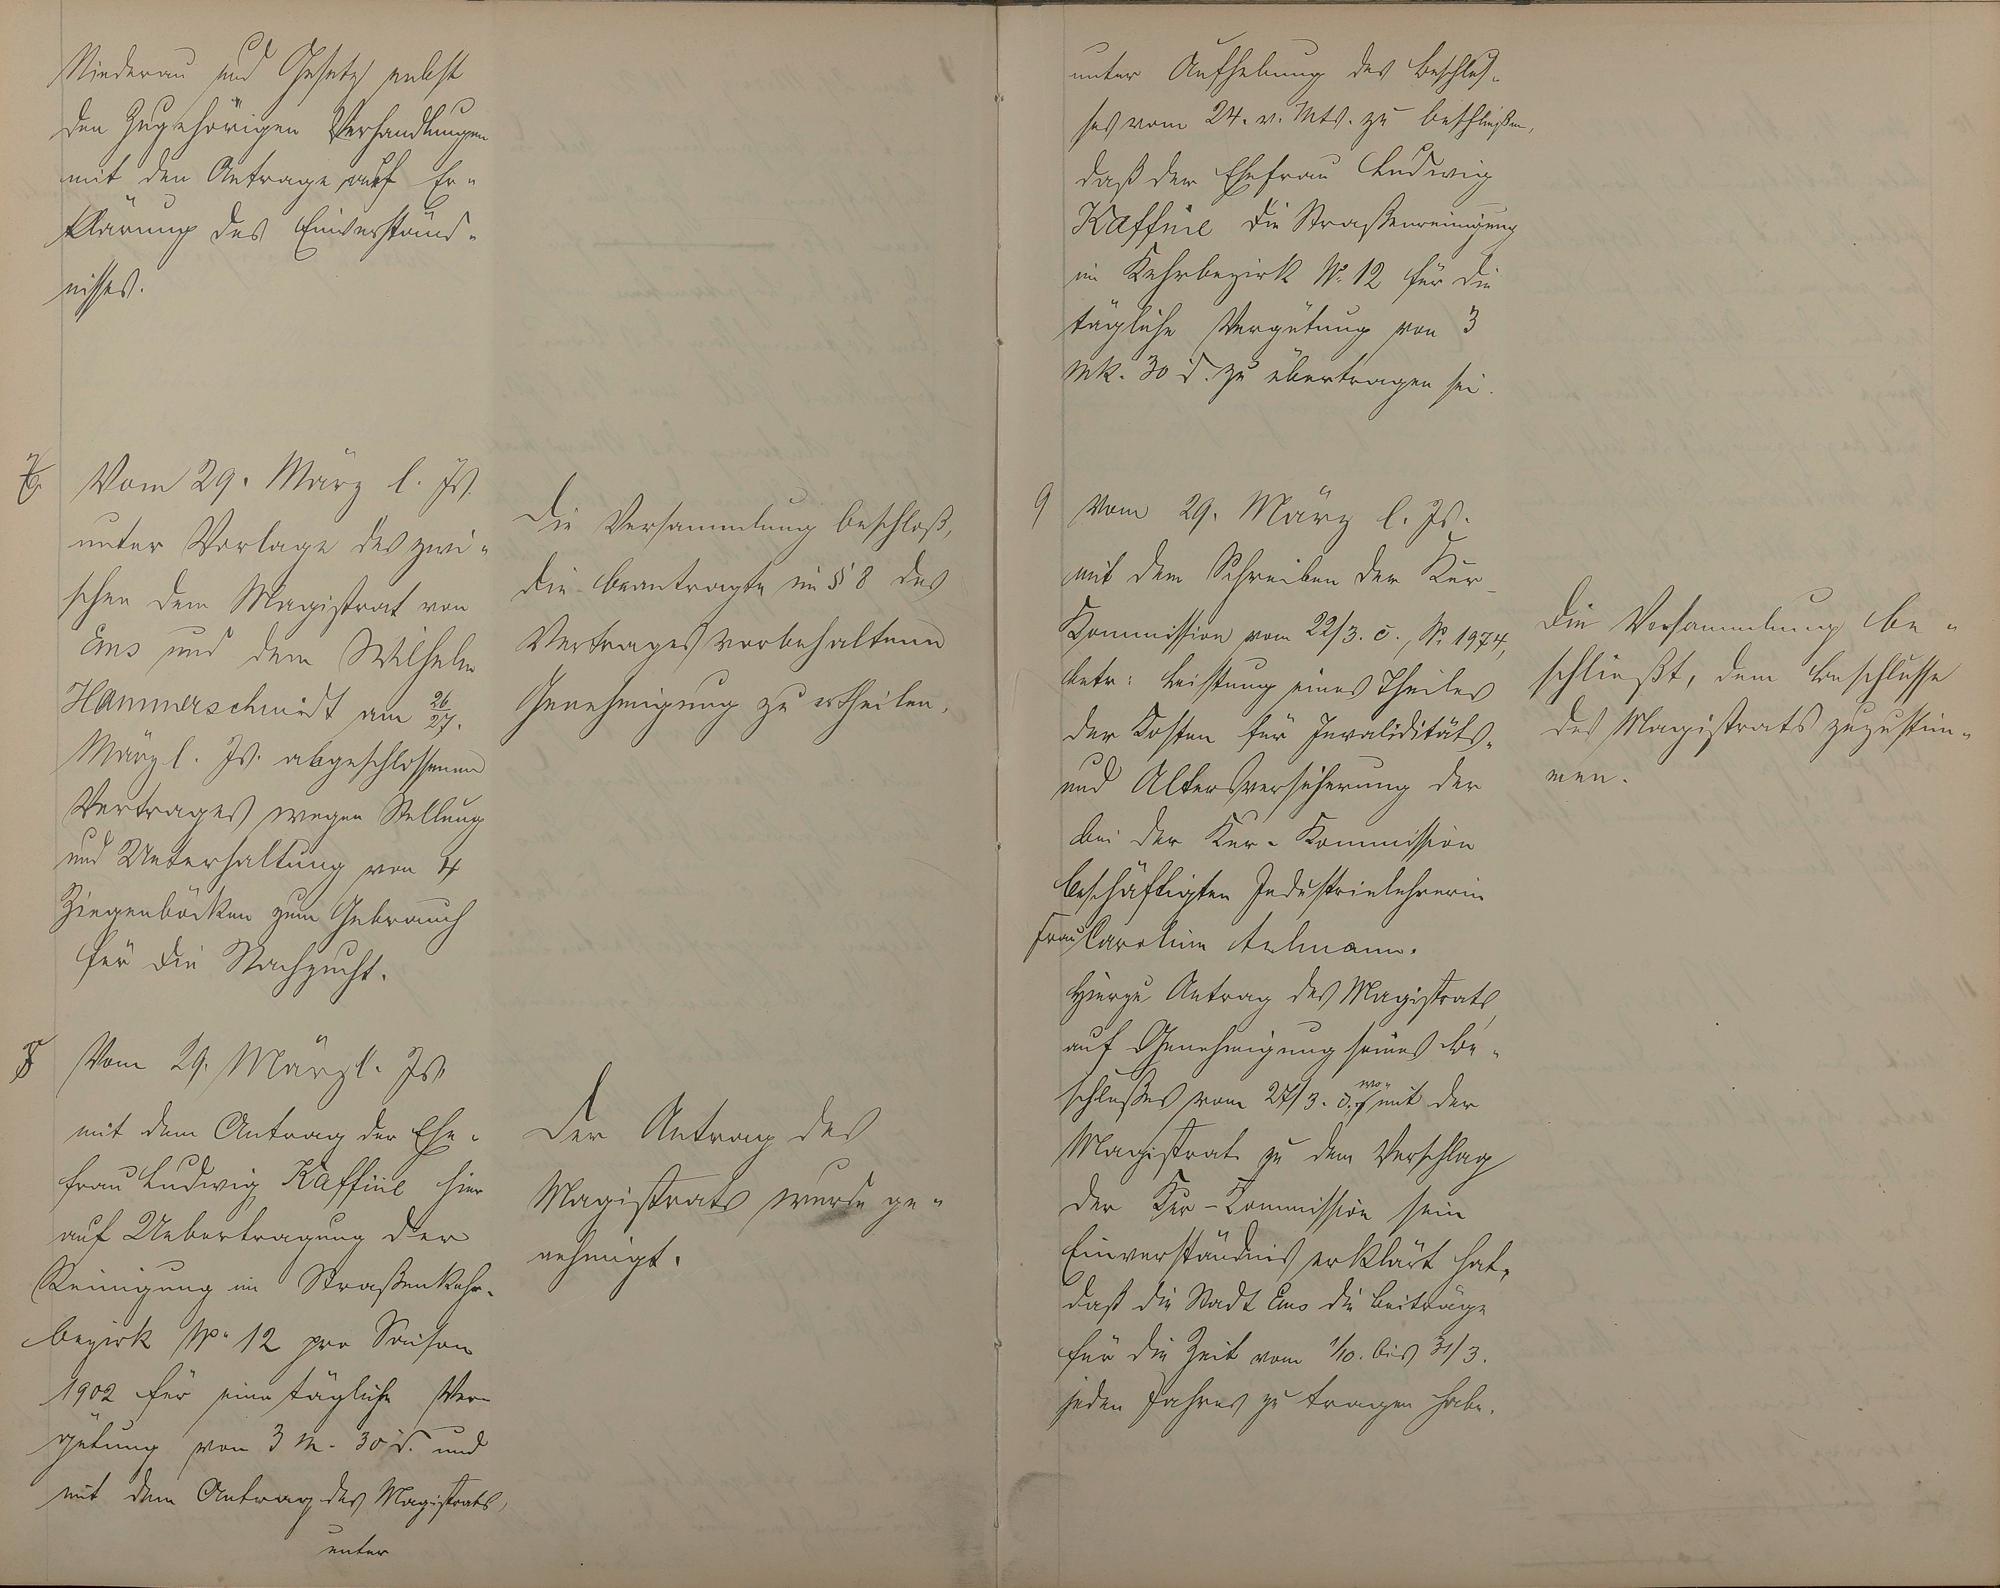 Niederau und Gesetz nebst
den zugehörigen Verhandlungen
mit den Antrage auf Er-
klärung des Einverständ-
nisses.
7. Vom 29. März l. Js.
unter Vorlage des zwi-
schen dem Magistrat von
Ems und dem Wilhelm
Hammerschmidt am 26/27.
März l. Js. abgeschlossenen
Vertrages wegen Stellung
und Unterhaltung von 4
Ziegenböcken zum Gebrauch
für die Nachzucht.
Die Versammlung beschloß,
die beantragte im § 8 des
Vertrages vorbehaltene
Genehmigung zu ertheilen.
8 Vom 29. März l. Js.
mit dem Antrag der Ehe-
frau Ludwig Kaffine hier
auf Uebertragung der
Reinigung im Straßenkehr-
bezirk No. 12 pro Saison
1902 für eine tägliche Ver-
gütung von 3 M. 30 d. und
mit dem Antrag des Magistrats,
unter
Der Antrag des
Magistrats wurde ge-
nehmigt.
unter Aufhebung des Beschlus-
ses vom 24. v. Mts. zu beschließen,
daß der Ehefrau Ludwig
Kaffine die Straßenreinigung
im Kehrbezirk No. 12 für die
tägliche Vergütung von 3
Mk. 30 d. zu übertragen sei.
9 Vom 29. März l. Js.
mit dem Schreiben der Kur-
Kommission vom 22/3. c., No. 1974,
betr: Leistung eines Theiles
der Kosten für Invaliditäts-
und Altersversicherung der
bei der Kur-Kommission
beschäftigten Industrielehrerin
Frau Caroline
Hierzu Antrag des Magistrats
auf Genehmigung seines Be-
schlußes vom 27/3. c., wo-mit der
Magistrat zu dem Vorschlag
der Kur-Commission sein
Einverständnis erklärt hat,
daß die Stadt Ems die Beiträge
für die Zeit vom 1/10. bis 31/3.
jeden Jahres zu tragen habe.
Die Versammlung be-
schließt, dem Beschlusse
des Magistrats zuzustim-
men.